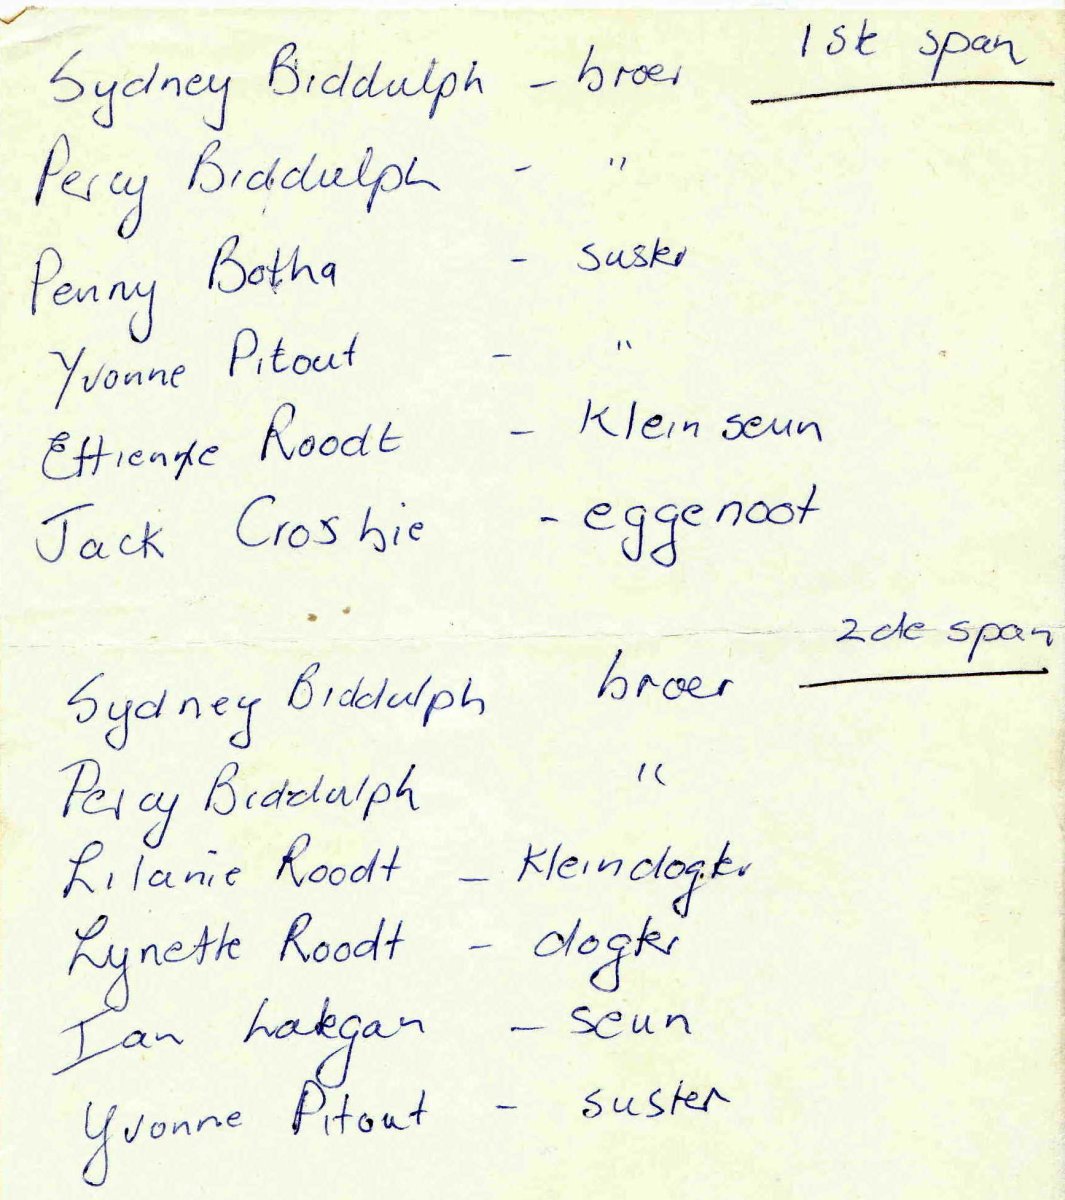 1ste span
Sydney Biddulph - broer
Percy Biddulph - "
Penny Botha - suster
Yvonne Pitout - "
Ettienne Roodt - Kleinseun
Jack Crosbie - eggenoot
2de span
Sydney Biddulph broer
Percy Biddulph "
Lilanie Roodt - Kleindogter
Lynette Roodt - dogter
Ian - seun
Yvonne Pitout - suster